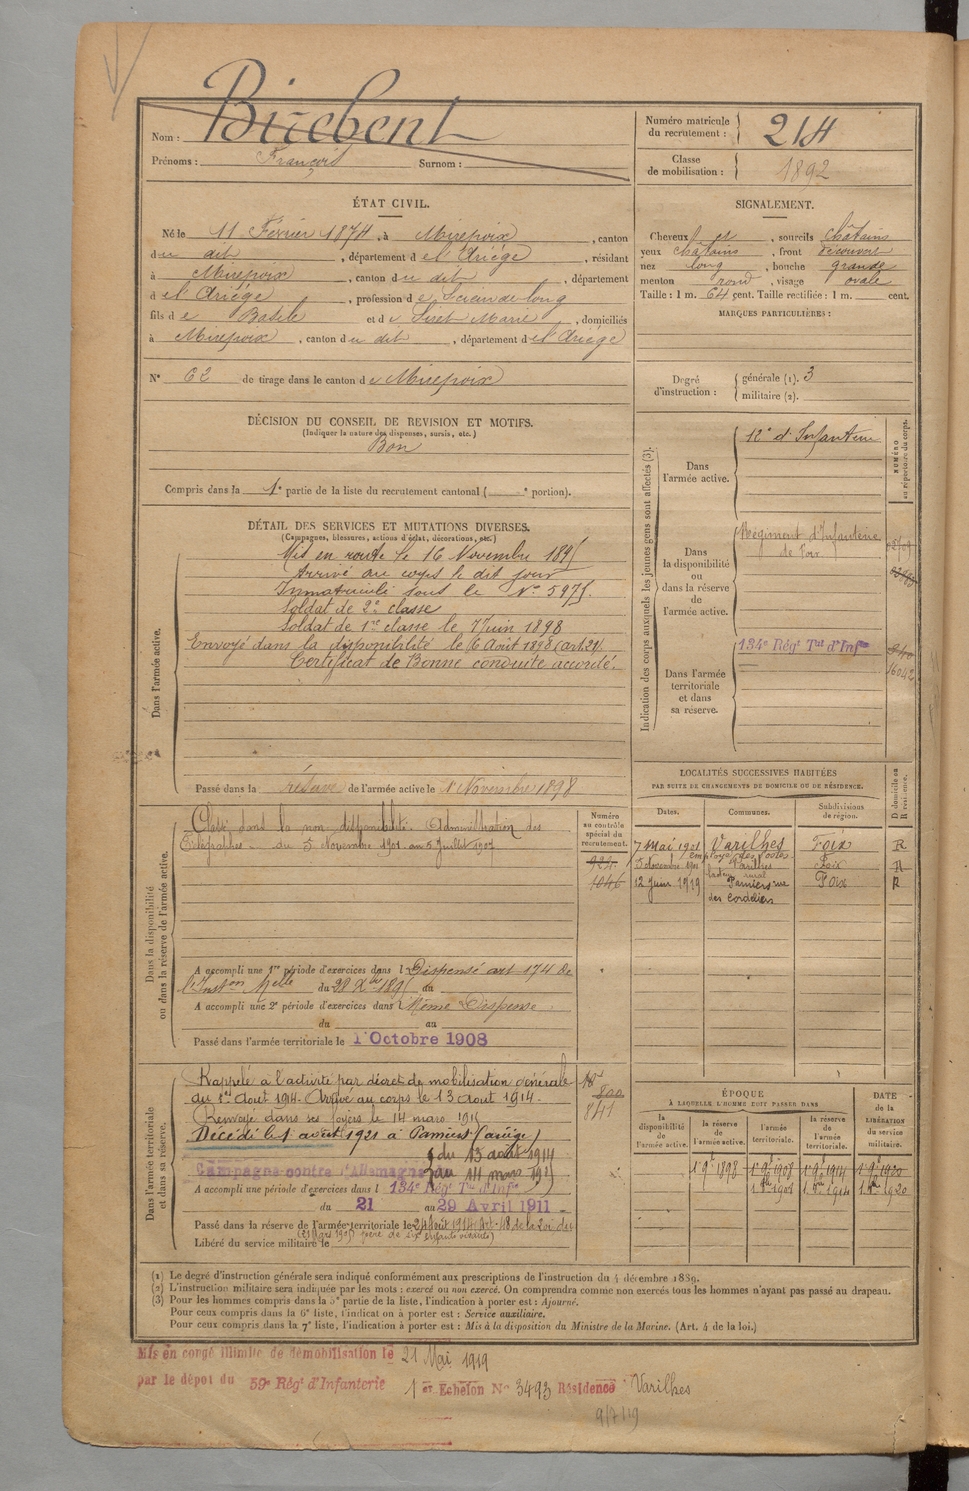 Nom : Birebent
Prénoms : François Surnom :
Numéro matricule du recrutement : 214
Classe de mobilisation : 1892
ÉTAT CIVIL.
Né le 11 Février 1874, à Mirepoix, canton
du dit, département de l'Ariège, résidant
à Mirepoix, canton du dit, département
d e l'Ariège, profession de Scieur de long
fils de Basile et de Siret Marie, domiciliés
à Mirepoix, canton du dit, département de l'Ariège
N° 62 de tirage dans le canton de Mirepoix
SIGNALEMENT.
Cheveux et, sourcils châtains
yeux châtains, front découvert
nez long, bouche grande
menton rond, visage ovale
Taille : 1 m. 64 cent. Taille rectifiée : 1 m. cent.
MARQUES PARTICULIÈRES :
Degré d'instruction : générale (1). 3
militaire (2).
DÉCISION DU CONSEIL DE REVISION ET MOTIFS.
(Indiquer la nature des dispenses, sursis, etc.)
Bon
Compris dans la 1e partie de la liste du recrutement cantonal ( e portion).
DÉTAIL DES SERVICES ET MUTATIONS DIVERSES.
(Campagnes, blessures, actions d'éclat, décorations, etc.)
Dans l'armée active.
Mis en route le 16 Novembre 1895
Arrivé au corps le dit jour
Immatriculé sous le N° 5975.
Soldat de 2e classe
Soldat de 1re classe le 7 Juin 1898
Envoyé dans la disponibilité le 6 Août 1898 (art. 21).
Certificat de Bonne conduite accordé.
Passé dans la réserve de l'armée active le 1r Novembre 1898
Indication des corps auxquels les jeunes gens sont affectés (3).
NUMÉRO au répertoire du corps.
Dans l'armée active.
12e d'Infanterie
Dans la disponibilité ou dans la réserve de l'armée active.
Régiment d'Infanterie
de Foix
Dans l'armée territoriale et dans sa réserve.
134e Régt Tal d'Infie
16042
LOCALITÉS SUCCESSIVES HABITÉES
PAR SUITE DE CHANGEMENTS DE DOMICILE OU DE RÉSIDENCE.
Dates. Communes. Subdivisions de région. D domicile ou R résidence.
7 mai 1901 Varilhes Foix R
5 Novembre 1901 Varilhes Foix R
12 Juin 1919 Pamiers rue Foix R
des Cordeliers
Dans la disponibilité ou dans la réserve de l'armée active.
Numéro au contrôle spécial du recrutement.
Classé dans la non disponibilité. Administration des
Télégraphes. du 5 Novembre 1901 au 5 Juillet 1907
1046
A accompli une 1re période d'exercices dans l Dispensé art 174 de
l'Inston Melle du 28 Xbre 1895 au
A accompli une 2e période d'exercices dans Même Dispense
du au
Passé dans l'armée territoriale le 1r Octobre 1908
Dans l'armée territoriale et dans sa réserve.
Rappelé à l'activité par décret de mobilisation générale
du 1er Août 1914. Arrivé au corps le 13 Août 1914.
Renvoyé dans ses foyers le 14 mars 1915
Décédé le 1 août 1921 à Pamiers (Ariège)
Campagne contre l'Allemagne du 13 août 1914
au 14 mars 1915
841
A accompli une période d'exercices dans l 134e Régt Tal d'Infie
du 21 au 29 Avril 1911
Passé dans la réserve de l'armée territoriale le 24 Août 1914 Art. 48 de la Loi du
(21 Mars 1905) père de six enfants vivants)
Libéré du service militaire le
ÉPOQUE
À LAQUELLE L'HOMME DOIT PASSER DANS
la disponibilité de l'armée active. la réserve de l'armée active. l'armée territoriale. la réserve de l'armée territoriale.
DATE de la LIBÉRATION du service militaire.
1r 9bre 1898 1r 9bre 1908 1r 9bre 1914 1r 9bre 1920
(1) Le degré d'instruction générale sera indiqué conformément aux prescriptions de l'instruction du 4 décembre 1889.
(2) L'instruction militaire sera indiquée par les mots : exercé ou non exercé. On comprendra comme non exercés tous les hommes n'ayant pas passé au drapeau.
(3) Pour les hommes compris dans la 5e partie de la liste, l'indication à porter est : Ajourné.
Pour ceux compris dans la 6e liste, l'indication à porter est : Service auxiliaire.
Pour ceux compris dans la 7e liste, l'indication à porter est : Mis à la disposition du Ministre de la Marine. (Art. 4 de la loi.)
Mis en congé illimité de démobilisation le 21 Mai 1919
par le dépôt du 59e Régt d'Infanterie 1er Echelon N° 3493 Résidence Varilhes
9/7/19